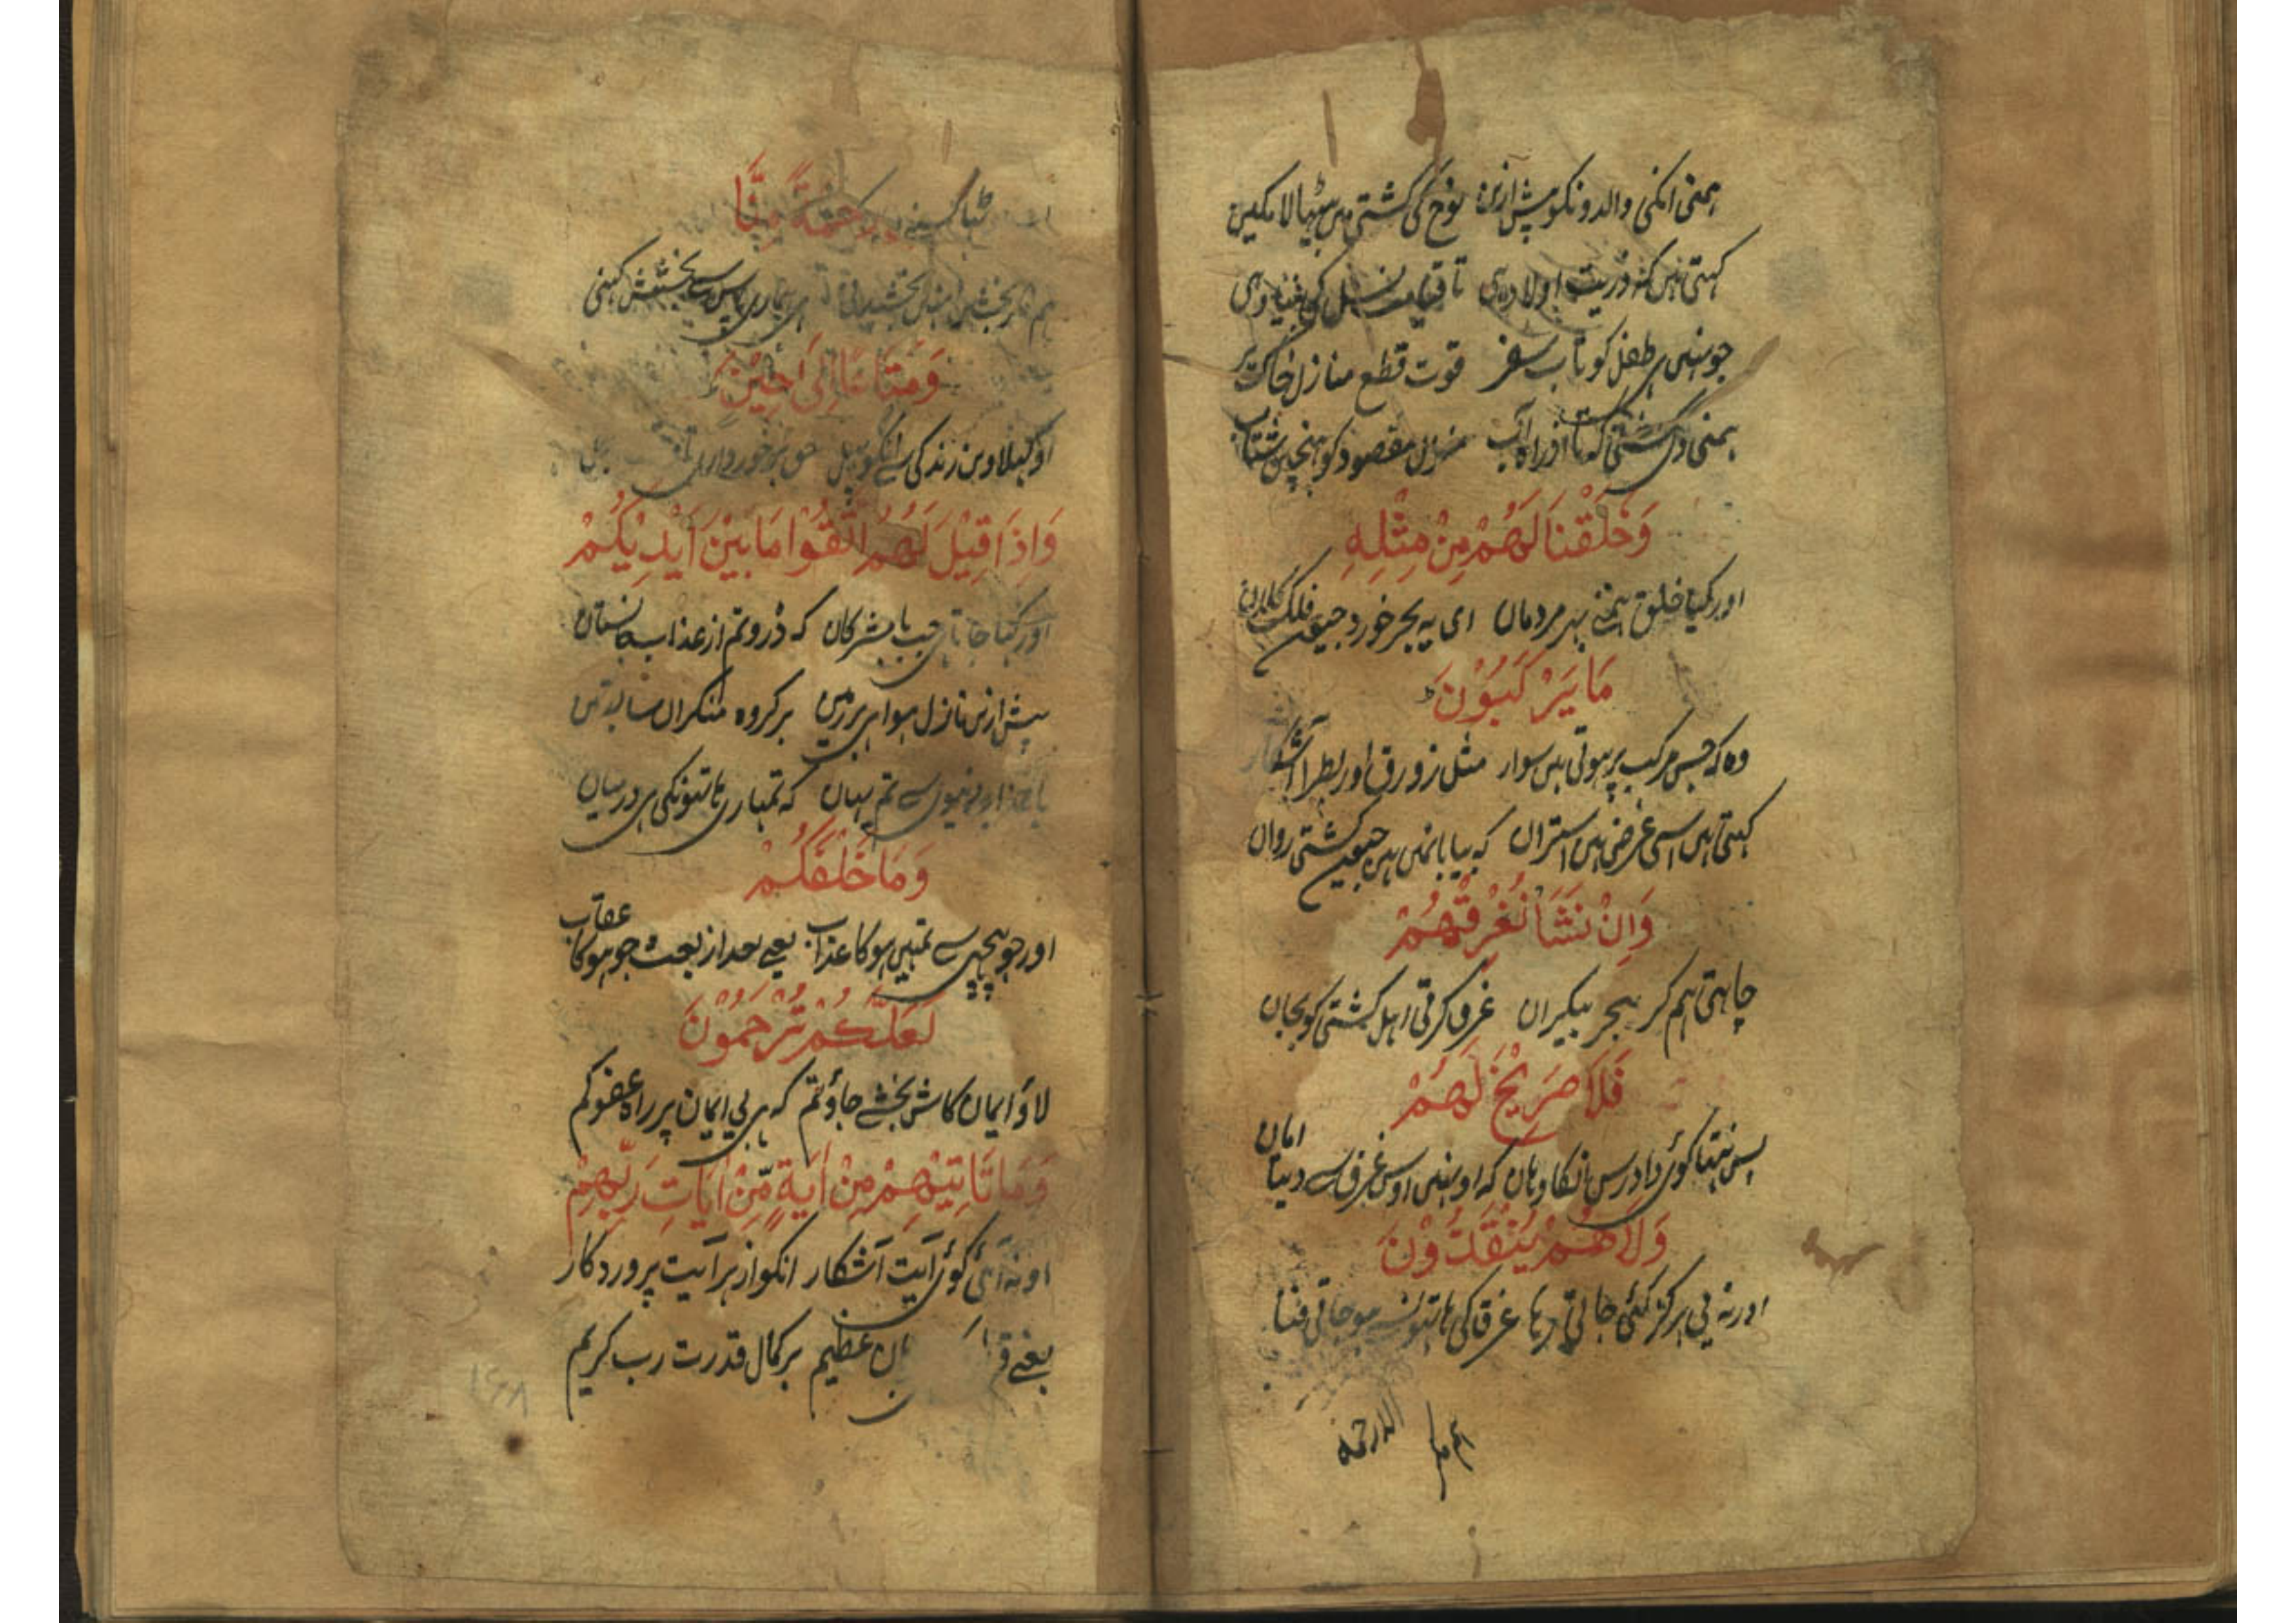 ہمنی انکی والدونکو پیش ازین نوح کی کشتی میں بٹہالا مکین
کہتی ہیں کہ ذریت اولاد ہی تا قیامت نسل کی بنیاد ہی
جو نہیں ہی طفل کو تاب سفر قوت قطع منازل خاک پر
ہمنی دی کشتی کہ تا از راہ آب منزل مقصود کو پہنچیں شتاب
وَخَلَقْنَا لَهُمْ مِنْ مِثْلِهِ
اور کیا خلق ہمنے بہر مردمان ای پہ بحر خورد جیون فلک کلان
مَا يَرْكَبُوْنَ
وہ کہ جس مرکب پر ہوتی ہیں سوار مثل زورق اور بطرا آشکار
کہتی ہیں اسی غرض ہیں استران کہ بیابانمیں ہیں جیون کشتی روان
وَاِنْ نَشَأْ نُغْرِقْهُمْ
چاہتی ہم گر ببحر بیکران غرق کرتی اہل کشتی کو بجان
فَلَا صَرِيْخَ لَهُمْ
پس نہتا کوئی دادرس انکا وہان کہ اونہیں اوس غرق سے دیتا امان
وَلَا هُمْ يُنْقَذُوْنَ
اور نہ بی ہرگز کئی جاتی رہا غرق کی ہاتہون سے ہو جاتی فنا
الا رحمۃ
ٹہا کسنے رَحْمَةً مِنَّا
ہم مگر بخشیں انہیں بخشیدنی ہی ہماری پاس سے بخشش کہنی
وَمَتَاعًا اِلٰى حِيْنٍ
اور کہلاوین زندگی سے انکو پہل برخورداری
وَاِذَا قِيْلَ لَهُمُ اتَّقُوْا مَا بَيْنَ اَيْدِيْكُمْ
اور کہا جاتا ہی جب با مشرکان کہ ڈرو تم از عذاب جانستان
پیش ازین نازل ہوا ہی بر زمین بر گروہ منکران سابقین
یا عذاب دنیوی سے تم یہان کہ تمہاری ہاتہونکی ہی درمیان
وَمَا خَلْفَكُمْ
اور جو پیچہی سے تمہیں ہوکا عذاب یعنے بعد از بعث جو ہوکا عقاب
لَعَلَّكُمْ تُرْحَمُوْنَ
لاؤ ایمان کاش بخشے جاؤ تم کہ ہی بی ایمان پر راہ عفو گم
وَمَا تَاْتِيْهِمْ مِنْ اٰيَةٍ مِّنْ اٰيَاتِ رَبِّهِمْ
اور نہ آئی کوئی آیت آشکار انکو از ہر آیت پروردکار
یعنے عظیم بر کمال قدرت رب کریم